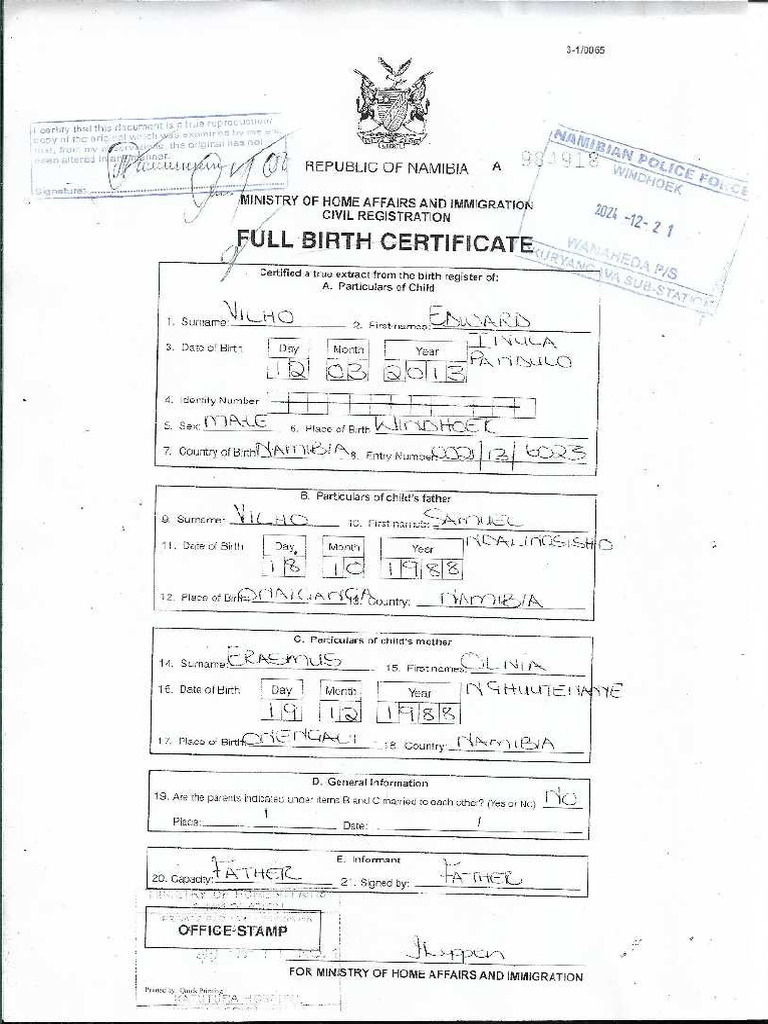 3-1/0065
I certify that this document is a true reproduction/
copy of the original which was examined by me and
that, from my observations, the original has not
been altered in any manner.
Signature:
REPUBLIC OF NAMIBIA A 984918
NAMIBIAN POLICE FORCE
WINDHOEK
2024 -12- 21
WANAHEDA P/S
SUB-STATION
MINISTRY OF HOME AFFAIRS AND IMMIGRATION
CIVIL REGISTRATION
FULL BIRTH CERTIFICATE
Certified a true extract from the birth register of:
A. Particulars of Child
1. Surname: VILHO 2. First names: EDWARD
3. Date of Birth Day Month Year
12 03 2013
4. Identity Number
5. Sex: MALE 6. Place of Birth WINDHOEK
7. Country of Birth NAMIBIA 8. Entry Number: 002/13/6023
B. Particulars of child's father
9. Surname: VILHO 10. First names: SAMUEL
11. Date of Birth Day Month Year
18 10 1988
12. Place of Birth: 13. Country: NAMIBIA
C. Particulars of child's mother
14. Surname: ERASMUS 15. First names: OLNIA
16. Date of Birth Day Month Year
19 12 1988
17. Place of Birth: 18. Country: NAMIBIA
D. General Information
19. Are the parents indicated under items B and C married to each other? (Yes or No) NO
Place: / Date: /
E. Informant
20. Capacity: FATHER 21. Signed by: FATHER
OFFICE-STAMP
FOR MINISTRY OF HOME AFFAIRS AND IMMIGRATION
Printed by Quick Printing